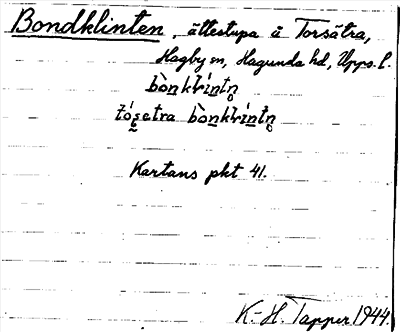 Bondklinten, ättestupa å Torsätra,
Hagby sn, Hagunda hd, Upps. l.
bònkłrìntn̥
tóșetra bònkłríntn̥
Kartans pkt 41.
K.-H. Tapper 1944.